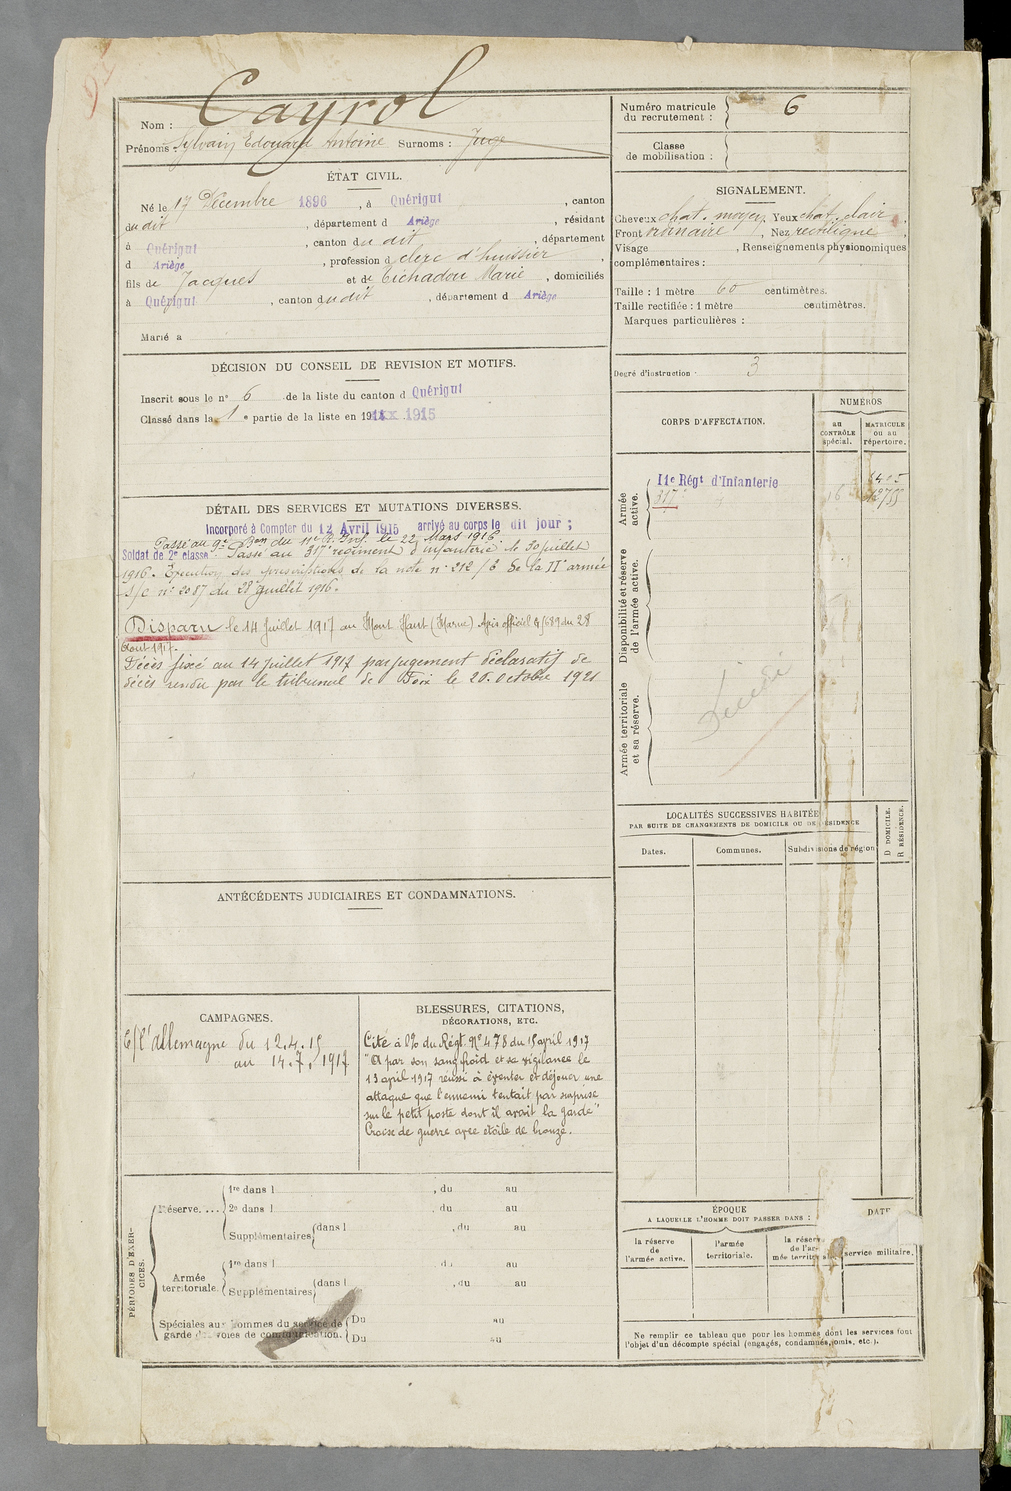 Cayrol
Nom :
Prénoms : Sylvain Edouard Antoine Surnoms : Juge
ÉTAT CIVIL.
Né le 17 Décembre 1896, à Quérigut, canton
du dit, département d Ariège, résidant
à Quérigut, canton du dit, département
d Ariège, profession d clerc d'huissier,
fils de Jacques et de Tichadou Marie, domiciliés
à Quérigut, canton du dit, département d Ariège
Marié à
DÉCISION DU CONSEIL DE REVISION ET MOTIFS.
Inscrit sous le n° 6 de la liste du canton d Quérigut
Classé dans la 1e partie de la liste en 1915
DÉTAIL DES SERVICES ET MUTATIONS DIVERSES.
Incorporé à Compter du 12 Avril 1915 arrivé au corps le dit jour ;
Passé au 9e Bon du 11e R. Inf. le 22 Mars 1916.
Soldat de 2e classe. Passé au 317e régiment d'infanterie le 30 juillet
1916. Exécution des prescriptions de la note n° 212/3 de la IIe armée
S/c n° 2087 du 28 juillet 1916.
Disparu le 14 Juillet 1917 au Mont Haut (Marne) Avis officiel 689 du 28
Aout 1917.
Décès fixé au 14 juillet 1917 par jugement déclaratif de
décès rendu par le tribunal de Foix le 20 octobre 1921
ANTÉCÉDENTS JUDICIAIRES ET CONDAMNATIONS.
CAMPAGNES.
C/ l'Allemagne du 12.4.15
au 14.7.1917
BLESSURES, CITATIONS,
DÉCORATIONS, ETC.
Cité à l'O. du Régt. N° 478 du 15 avril 1917
"A par son sang froid et sa vigilance le
13 avril 1917 réussi à éventer et déjouer une
attaque que l'ennemi tentait par surprise
sur le petit poste dont il avait la garde"
Croix de guerre avec étoile de bronze.
PÉRIODES D'EXERCICES.
Réserve.... 1re dans l , du au
2e dans l , du au
Supplémentaires dans l , du au
Armée territoriale. 1re dans l , du au
Supplémentaires dans l , du au
Spéciales aux hommes du service de garde des voies de communication. Du au
Du au
Numéro matricule du recrutement : 6
Classe de mobilisation :
SIGNALEMENT.
Cheveux chat. moyen, Yeux chat. clair,
Front ordinaire, Nez rectiligne,
Visage , Renseignements physionomiques
complémentaires :
Taille : 1 mètre 60 centimètres.
Taille rectifiée : 1 mètre centimètres.
Marques particulières :
Degré d'instruction 3
CORPS D'AFFECTATION.
NUMÉROS
au CONTRÔLE spécial.
MATRICULE OU AU RÉPERTOIRE.
Armée active.
11e Régt d'Infanterie
317e
16
Disponibilité et réserve de l'armée active.
Armée territoriale et sa réserve.
Décédé
LOCALITÉS SUCCESSIVES HABITÉES
PAR SUITE DE CHANGEMENTS DE DOMICILE OU DE RÉSIDENCE
D DOMICILE.
R RÉSIDENCE.
Dates. Communes. Subdivisions de région
ÉPOQUE
A LAQUELLE L'HOMME DOIT PASSER DANS :
DATE
la réserve de l'armée active.
l'armée territoriale.
la réserve de l'armée territoriale
service militaire.
Ne remplir ce tableau que pour les hommes dont les services font
l'objet d'un décompte spécial (engagés, condamnés, omis, etc.).